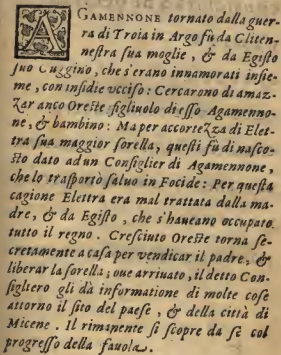 AGAMENNONE tornato dalla guer-
ra di Troia in Argo fù da Cliten-
nestra sua moglie, & da Egisto
suo Cuggino, che s'erano innamorati insie-
me, con insidie ucciso: Cercarono di amaz-
zar anco Oreste figliuolo di esso Agamenno-
ne, & bambino: Ma per accortezza di Elet-
tra sua maggior sorella, questi fù di nasco-
sto dato ad un Consiglier di Agamennone,
che lo trasportò saluo in Focide: Per questa
cagione Elettra era mal trattata dalla ma-
dre, & da Egisto, che s'haueano occupato
tutto il regno. Cresciuto Oreste torna se-
cretamente a casa per vendicar il padre, &
liberar la sorella; oue arriuato, il detto Con-
sigliero gli dà informatione di molte cose
attorno il sito del paese, & della città di
Micene. Il rimanente si scopre da sè col
progresso della fauola.